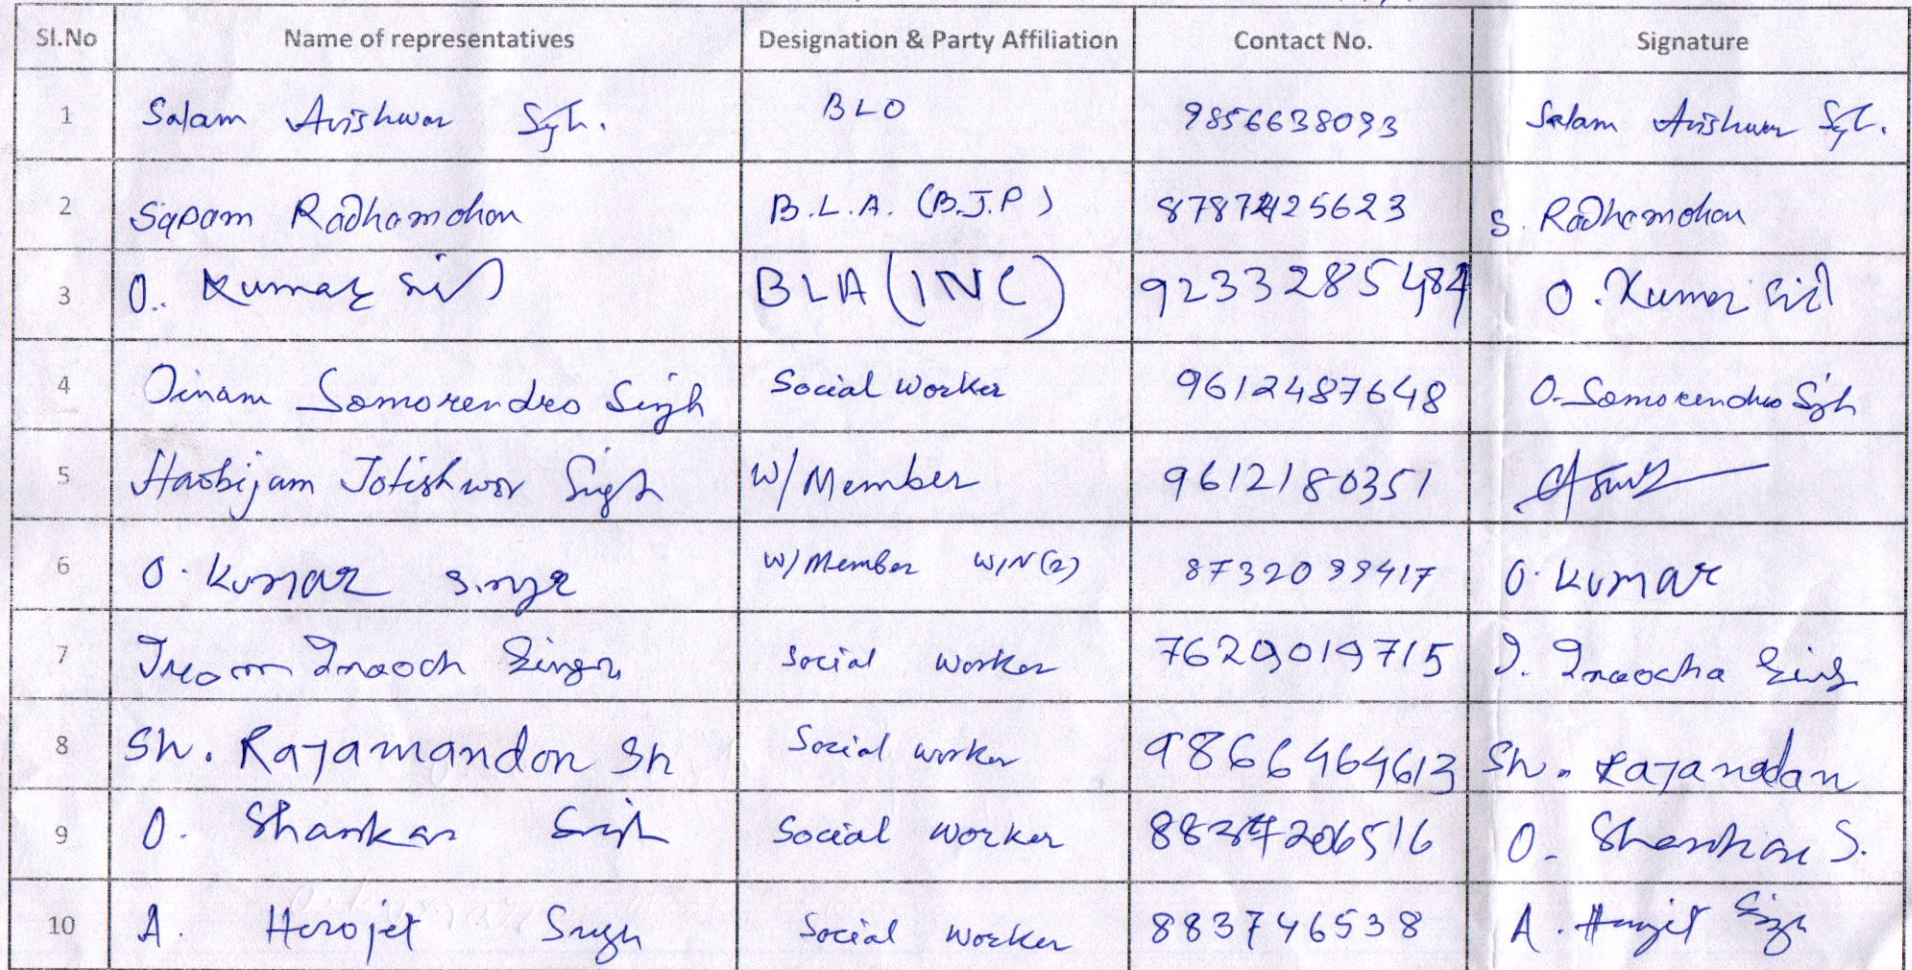 Sl.No Name of representatives Designation & Party Affiliation Contact No. Signature
1 Salam Arishwor Sgh. BLO 9856638093 Salam Arishwor Sgh.
2 Sapam Radhamohon B.L.A. (B.J.P) 8787425623 S. Radhamohon
3 O. Kumar BLA (INC) 9233285484 O. Kumar
4 Oinam Somorendro Singh Social Worker 9612487648 O. Somorendro Sgh
5 Haobijam Jotishwor Singh W/Member 9612180351
6 O. Kumar Singh W/Member W/N(2) 8732099417 O. Kumar
7 Singh Social Worker 7629019715 Singh
8 Sh. Rajamandon Sh Social worker 9866464613 Sh. Rajanadan
9 O. Shankar Singh Social Worker O. Shankar S.
10 A. Herojet Singh Social Worker 883746538 A. Herojit Singh